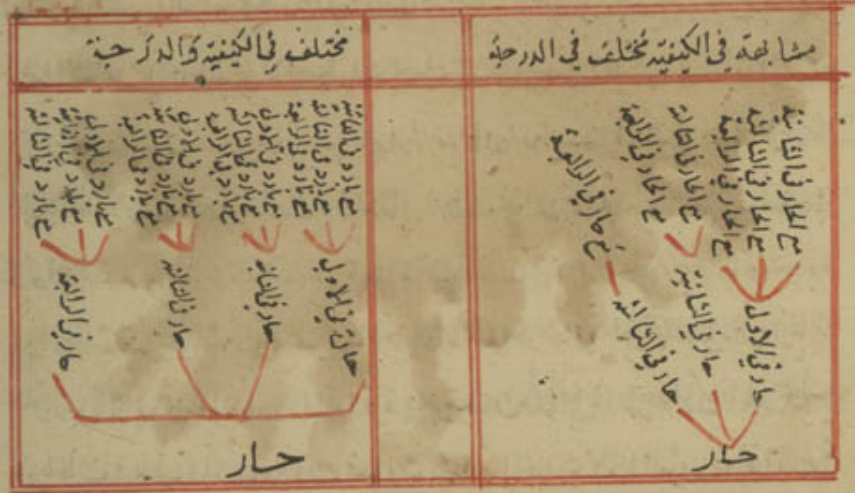 مشابهة في الكيفية مختلف في الدرجة
مع الحار في الثانية
مع الحار في الثالثة
مع الحار في الرابعة
مع الحار في الثالثة
مع الحار في الرابعة
مع حار في الرابعة
حار في الاولى
حار في الثانية
حار في الثالثة
حار
مختلف في الكيفية والدرجة
مع بارد في الثانية
مع بارد في الثالثة
مع بارد في الرابعة
مع بارد في الاولى
مع بارد في الثالثة
مع بارد في الرابعة
مع بارد في الاولى
مع بارد في الثانية
مع بارد في الرابعة
مع بارد في الاولى
مع بارد في الثانية
مع بارد في الثالثة
حارة في الاولى
حار في الثانية
حار في الثالثة
حار في الرابعة
حار